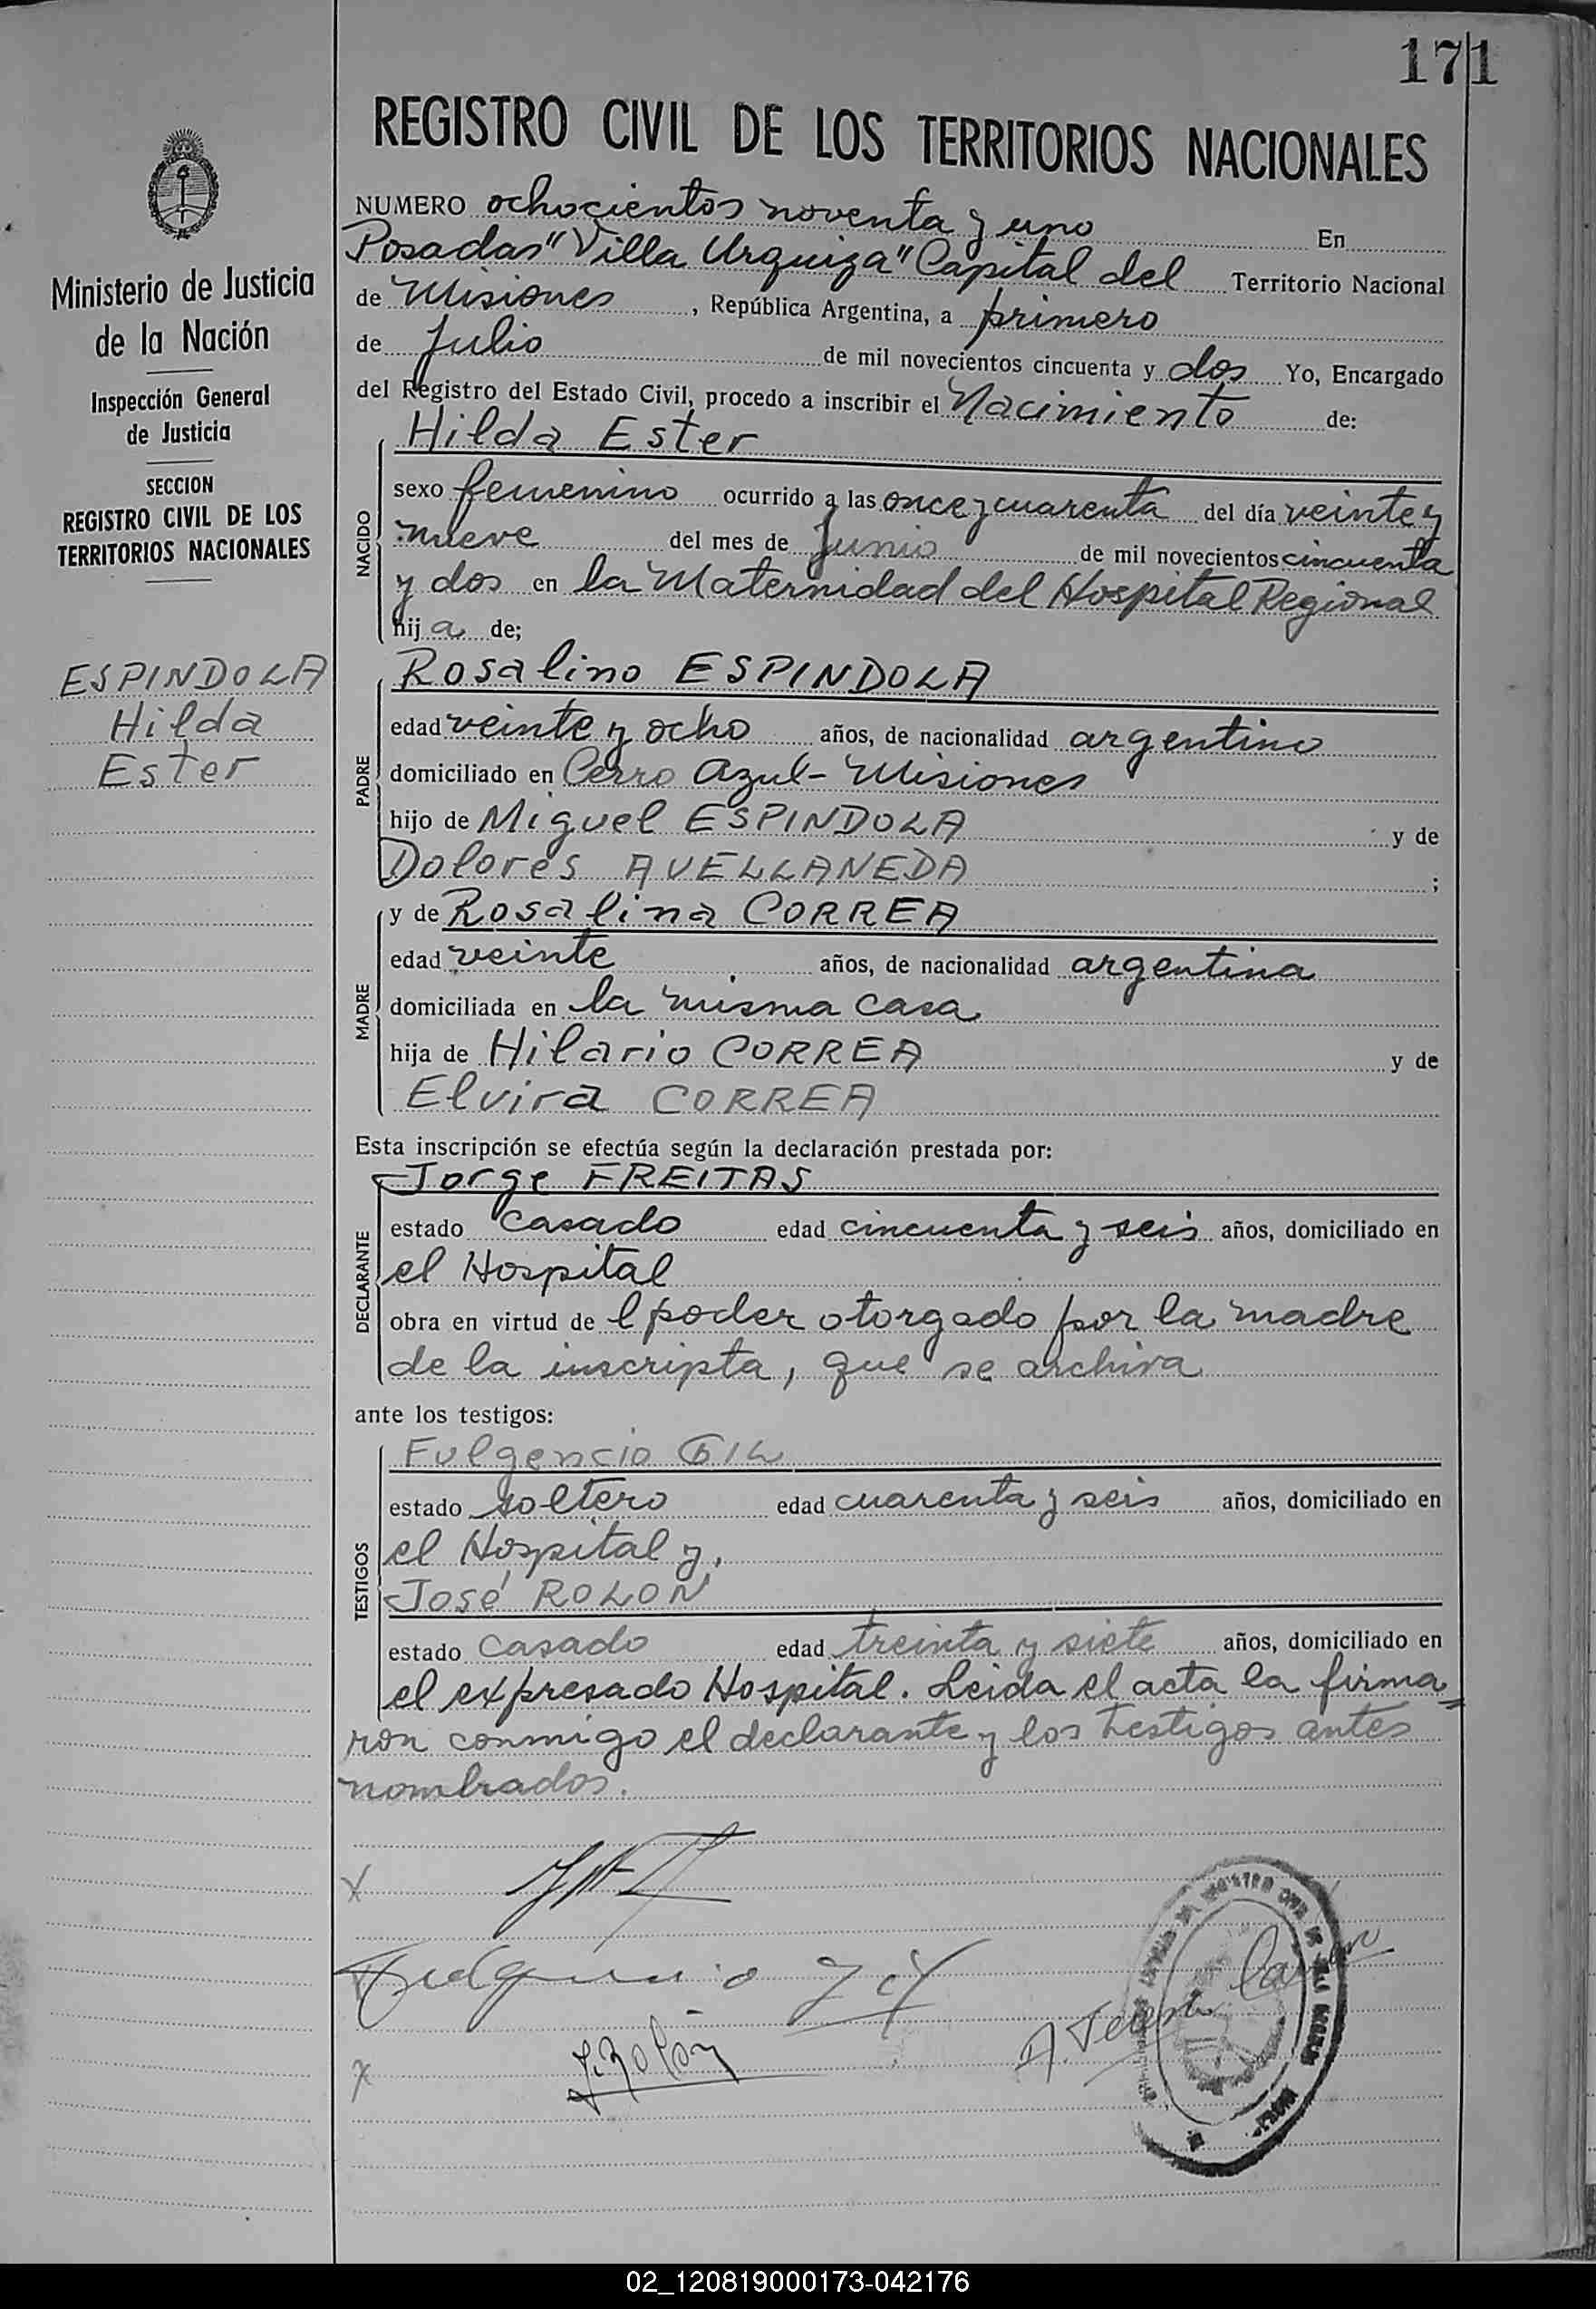 171
REGISTRO CIVIL DE LOS TERRITORIOS NACIONALES
Ministerio de Justicia
de la Nación
Inspección General
de Justicia
SECCION
REGISTRO CIVIL DE LOS
TERRITORIOS NACIONALES
ESPINDOLA
Hilda
Ester
NUMERO ochocientos noventa y uno En
Posadas "Villa Urquiza" Capital del Territorio Nacional
de Misiones, República Argentina, a primero
de Julio de mil novecientos cincuenta y dos Yo, Encargado
del Registro del Estado Civil, procedo a inscribir el Nacimiento de:
Hilda Ester
NACIDO
sexo femenino ocurrido a las once y cuarenta del día veinte y
nueve del mes de Junio de mil novecientos cincuenta
y dos en la Maternidad del Hospital Regional
hija de;
Rosalino ESPINDOLA
PADRE
edad veinte y ocho años, de nacionalidad argentino
domiciliado en Cerro Azul - Misiones
hijo de Miguel ESPINDOLA y de
Dolores AVELLANEDA ;
y de Rosalina CORREA
MADRE
edad veinte años, de nacionalidad argentina
domiciliada en la misma casa
hija de Hilario CORREA y de
Elvira CORREA
Esta inscripción se efectúa según la declaración prestada por:
Jorge FREITAS
DECLARANTE
estado casado edad cincuenta y seis años, domiciliado en
el Hospital
obra en virtud de l poder otorgado por la madre
de la inscripta, que se archiva
ante los testigos:
Fulgencio GIL
TESTIGOS
estado soltero edad cuarenta y seis años, domiciliado en
el Hospital y,
José ROLON
estado casado edad treinta y siete años, domiciliado en
el expresado Hospital. Leida el acta la firma=
ron conmigo el declarante y los testigos antes
nombrados.
x
Fulgencio Gil
x
J. Rolón
02_120819000173-042176